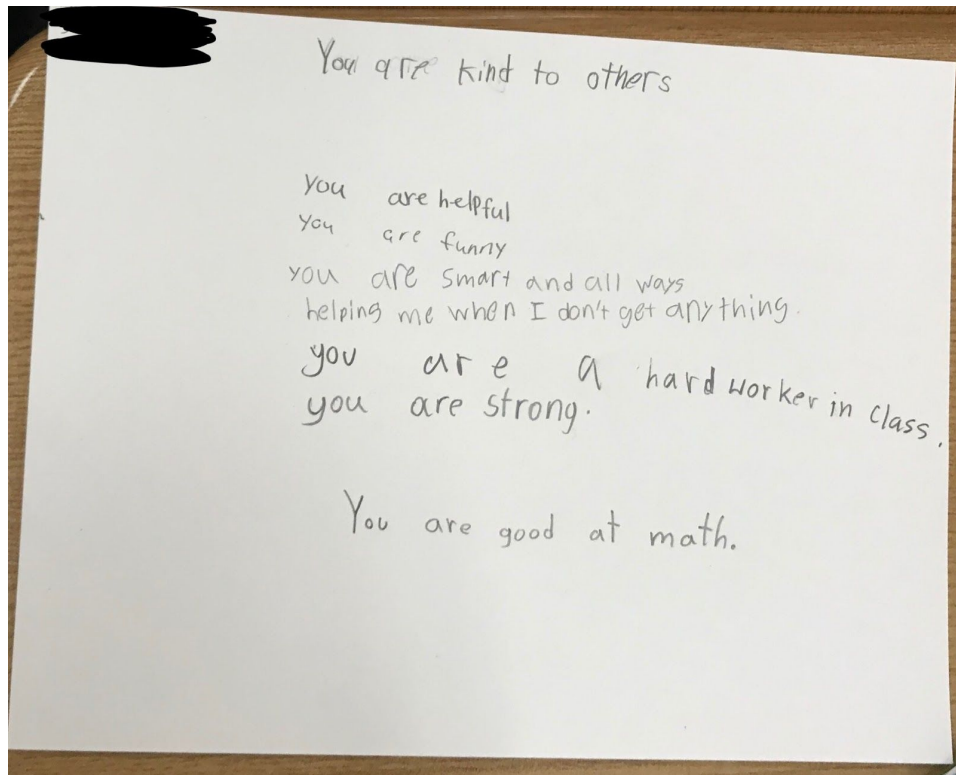 You are kind to others
you are helpful
you are funny
you are smart and all ways
helping me when I don't get anything.
you are a hard worker in class.
you are strong.
You are good at math.